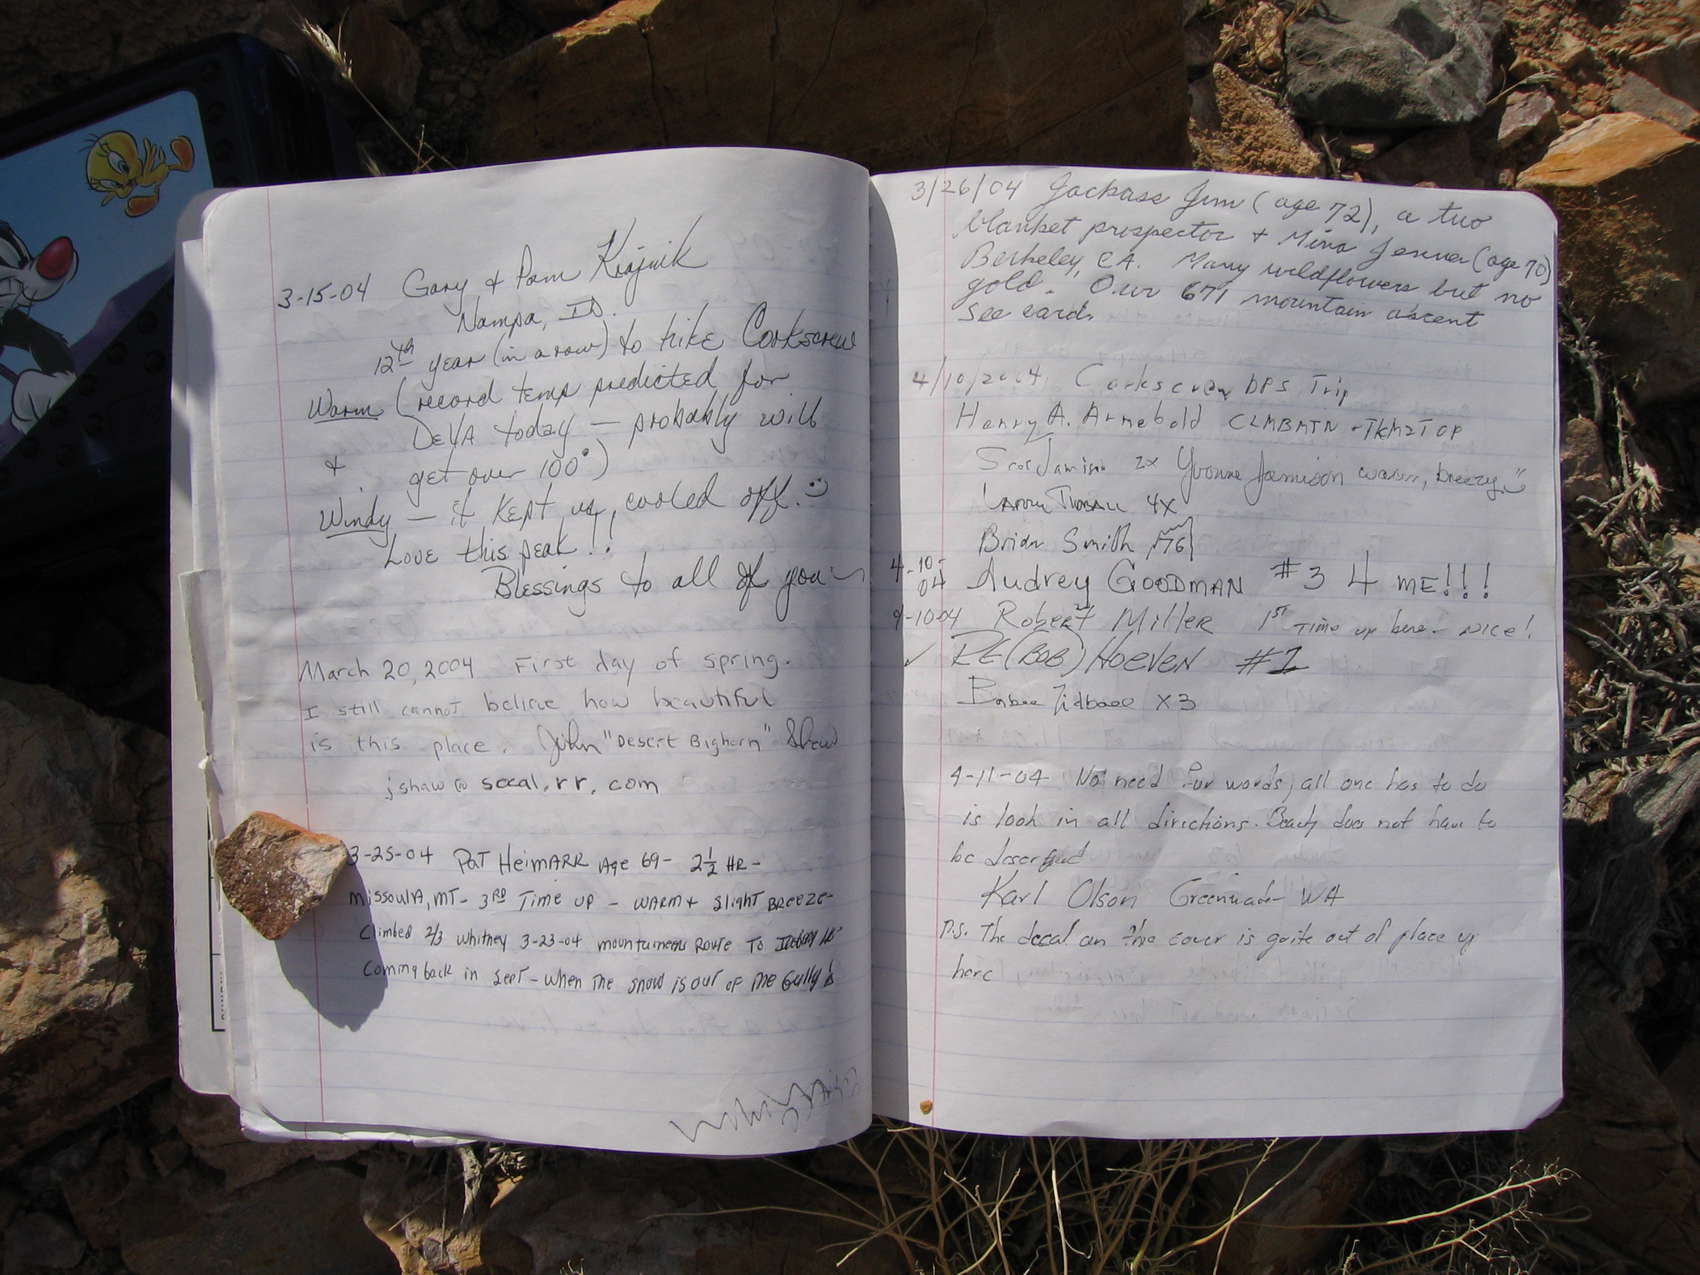 3-15-04 Gary & Pam Krajnik
Nampa, ID.
12th year (in a row) to hike Corkscrew
Warm (record temp predicted for
DEVA today – probably will
& get over 100°)
Windy – it kept us cooled off.
Love this peak!!
Blessings to all of you
March 20, 2004 First day of spring.
I still cannot believe how beautiful
is this place. John "Desert Bighorn" Shaw
jshaw@socal.rr.com
3-25-04 Pat Heimarr Age 69- 2½ HR-
Missoula, MT- 3RD Time up - warm + slight Breeze-
Climbed 2/3 Whitney 3-23-04 mountaineers Route To
Coming back in Sept - when the snow is out of the Gully!
3/26/04 Jackass Jim (age 72), a two
blanket prospector + Mina Jenner (age 70)
Berkeley, CA. Many wildflowers but no
gold. Our 671 mountain ascent
See card.
4/10/2004 Corkscrew DPS Trip
Henry A. Arnebold CLMBMTN-TKM2TOP
Jamison 2x Yvonne Jamison warm, breezy
4X
Brian Smith
4-10-04 Audrey Goodman #3 4 ME!!!
4-10-04 Robert Miller 1st Time up here - Nice!
✓ RE(BOB) Hoeven #1
X3
4-11-04 No need for words, all one has to do
is look in all directions. does not have to
be
Karl Olson WA
P.S. The decal on the cover is quite out of place up
here